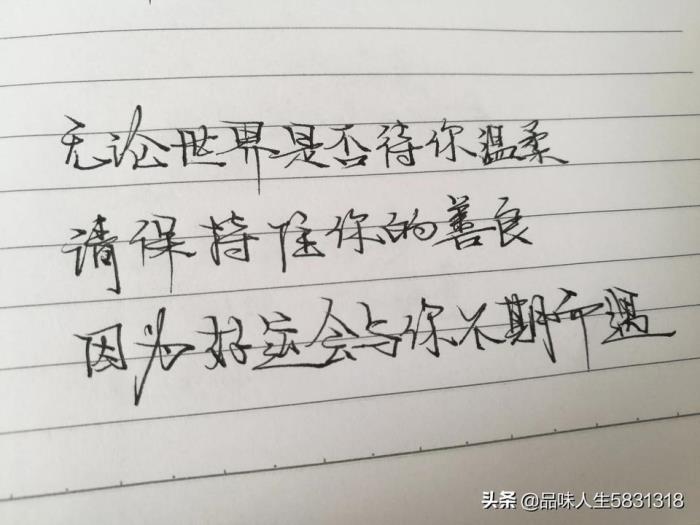 无论世界是否待你温柔
请保持住你的善良
因为好运会与你不期而遇
头条 @品味人生5831318